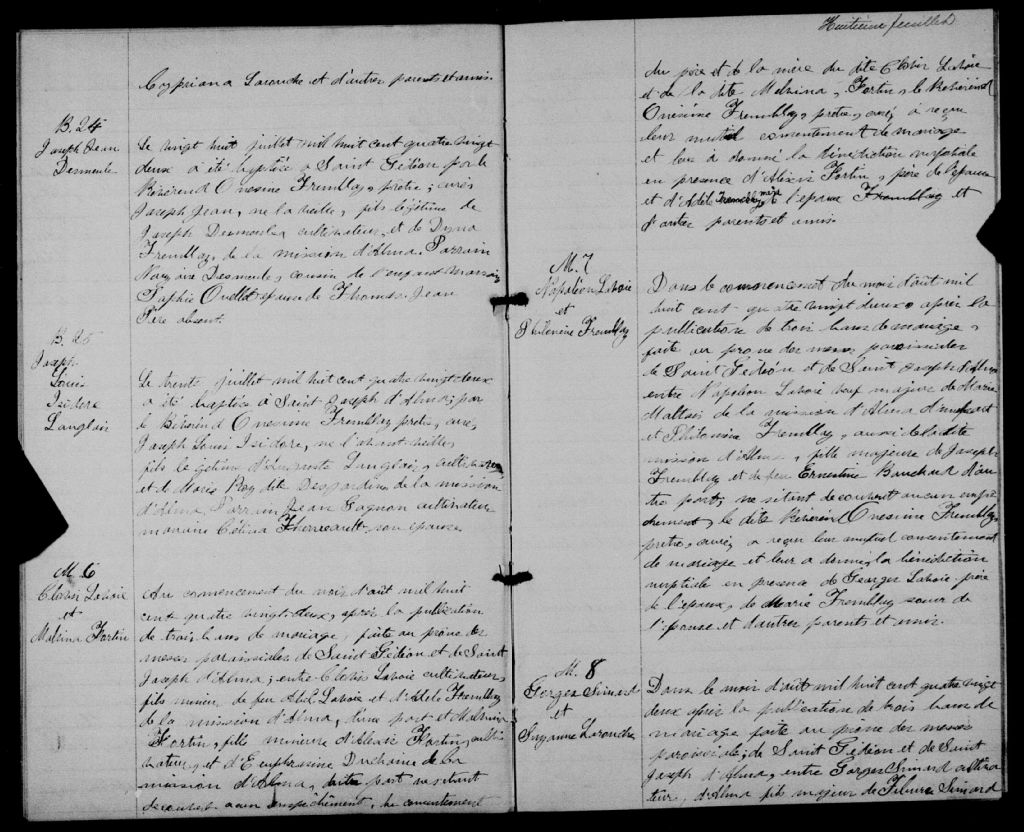 Cypriana Larouche et d'autres parents et amis.
B. 24
Joseph Jean
Desmeule
Le vingt huit juillet mil huit cent quatre vingt
deux a été baptisé a Saint Gédéon par le
Révérend Onesime Tremblay, prêtre, curé
Joseph Jean, né la veille, fils légitime de
Joseph Desmeules cultivateur, et de Dyna
Tremblay, de la mission d'Alma. Parrain
Desmeule, cousin de l'enfant marraine
Sophie Ouellet epouse de Thomas Jean
Père absent.
B. 25
Joseph
Louis
Isidore
Langlais
Le trente juillet mil huit cent quatre vingt deux
a été baptisé à Saint Joseph d'Alma, par
le Révérend Onesime Tremblay prêtre, curé,
Joseph Louis Isidore, né l'avant veille,
fils légitime Langlais, cultivateur
et de Marie Roy dite Desjardins de la mission
d'Alma Parrain Jean Gagnon cultivateur
marraine Célina son épouse
M. 6
Clovis Lavoie
et
Malvina Fortin
Au commencement du mois d'août mil huit
cent quatre vingt-deux, après la publication
de trois bans de mariage, faite au prône des
messes paroissiales de Saint Gédéon et de Saint
Joseph d'Alma; entre Clovis Lavoie cultivateur
fils mineur de feu Abel Lavoie et d'Adèle Tremblay
de la mission d'Alma, d'une part et Malvina
Fortin, fille mineure d'Alexis Fortin, cultivateur
et d'Euphrasine Duchaine de la
mission d'Alma, part
découvert aucun empêchement, le consentement
Huitième feuillet
du père et de la mère du dite Clovis Lavoie
et de la dite Malvina Fortin, le Révérend
Onésime Tremblay, prêtre, curé, a reçu
leur mutuel consentement de mariage
et leur a donné la bénédiction nuptiale
en presence d'Alexis Fortin, père de l'épouse
et d'Adele Tremblay mère de l'epoux Tremblay et
d'autres parents et amis.
M. 7
Napoléon Lavoie
et
Philomène Tremblay
Dans le commencement du mois d'août mil
huit cent quatre vingt deux, après la
publication de trois bans de mariage,
faite au prone des messes paroissiales
de Saint Gédéon et de Saint Joseph d'Alma
entre Napoléon Lavoie veuf majeur de Marie
Maltais de la mission d'Alma d'une part
et Philomène Tremblay, aussi de la dite
mission d'Alma, fille majeure de Joseph
Tremblay et de feu Ernestine Bouchard d'autre
part; ne s'étant découvert aucun empêchement,
le dite Révérend Onesime Tremblay
prêtre, curé, a reçu leur mutuel consentement
de mariage et leur a donné la bénédiction
nuptiale en presence de Georges Lavoie, frère
de l'époux, de Marie Tremblay soeur de
l'épouse et d'autres parents et amis.
M. 8
Gorges Simard
et
Suzanne Larouche
Dans le mois d'août mil huit cent quatre vingt
deux après la publication de trois bans de
mariage faite au prône des messes
paroissiale, de Saint Gédéon et de Saint
Joseph d'Alma, entre Gorges Simard cultivateur,
d'Alma fils majeur de Simard